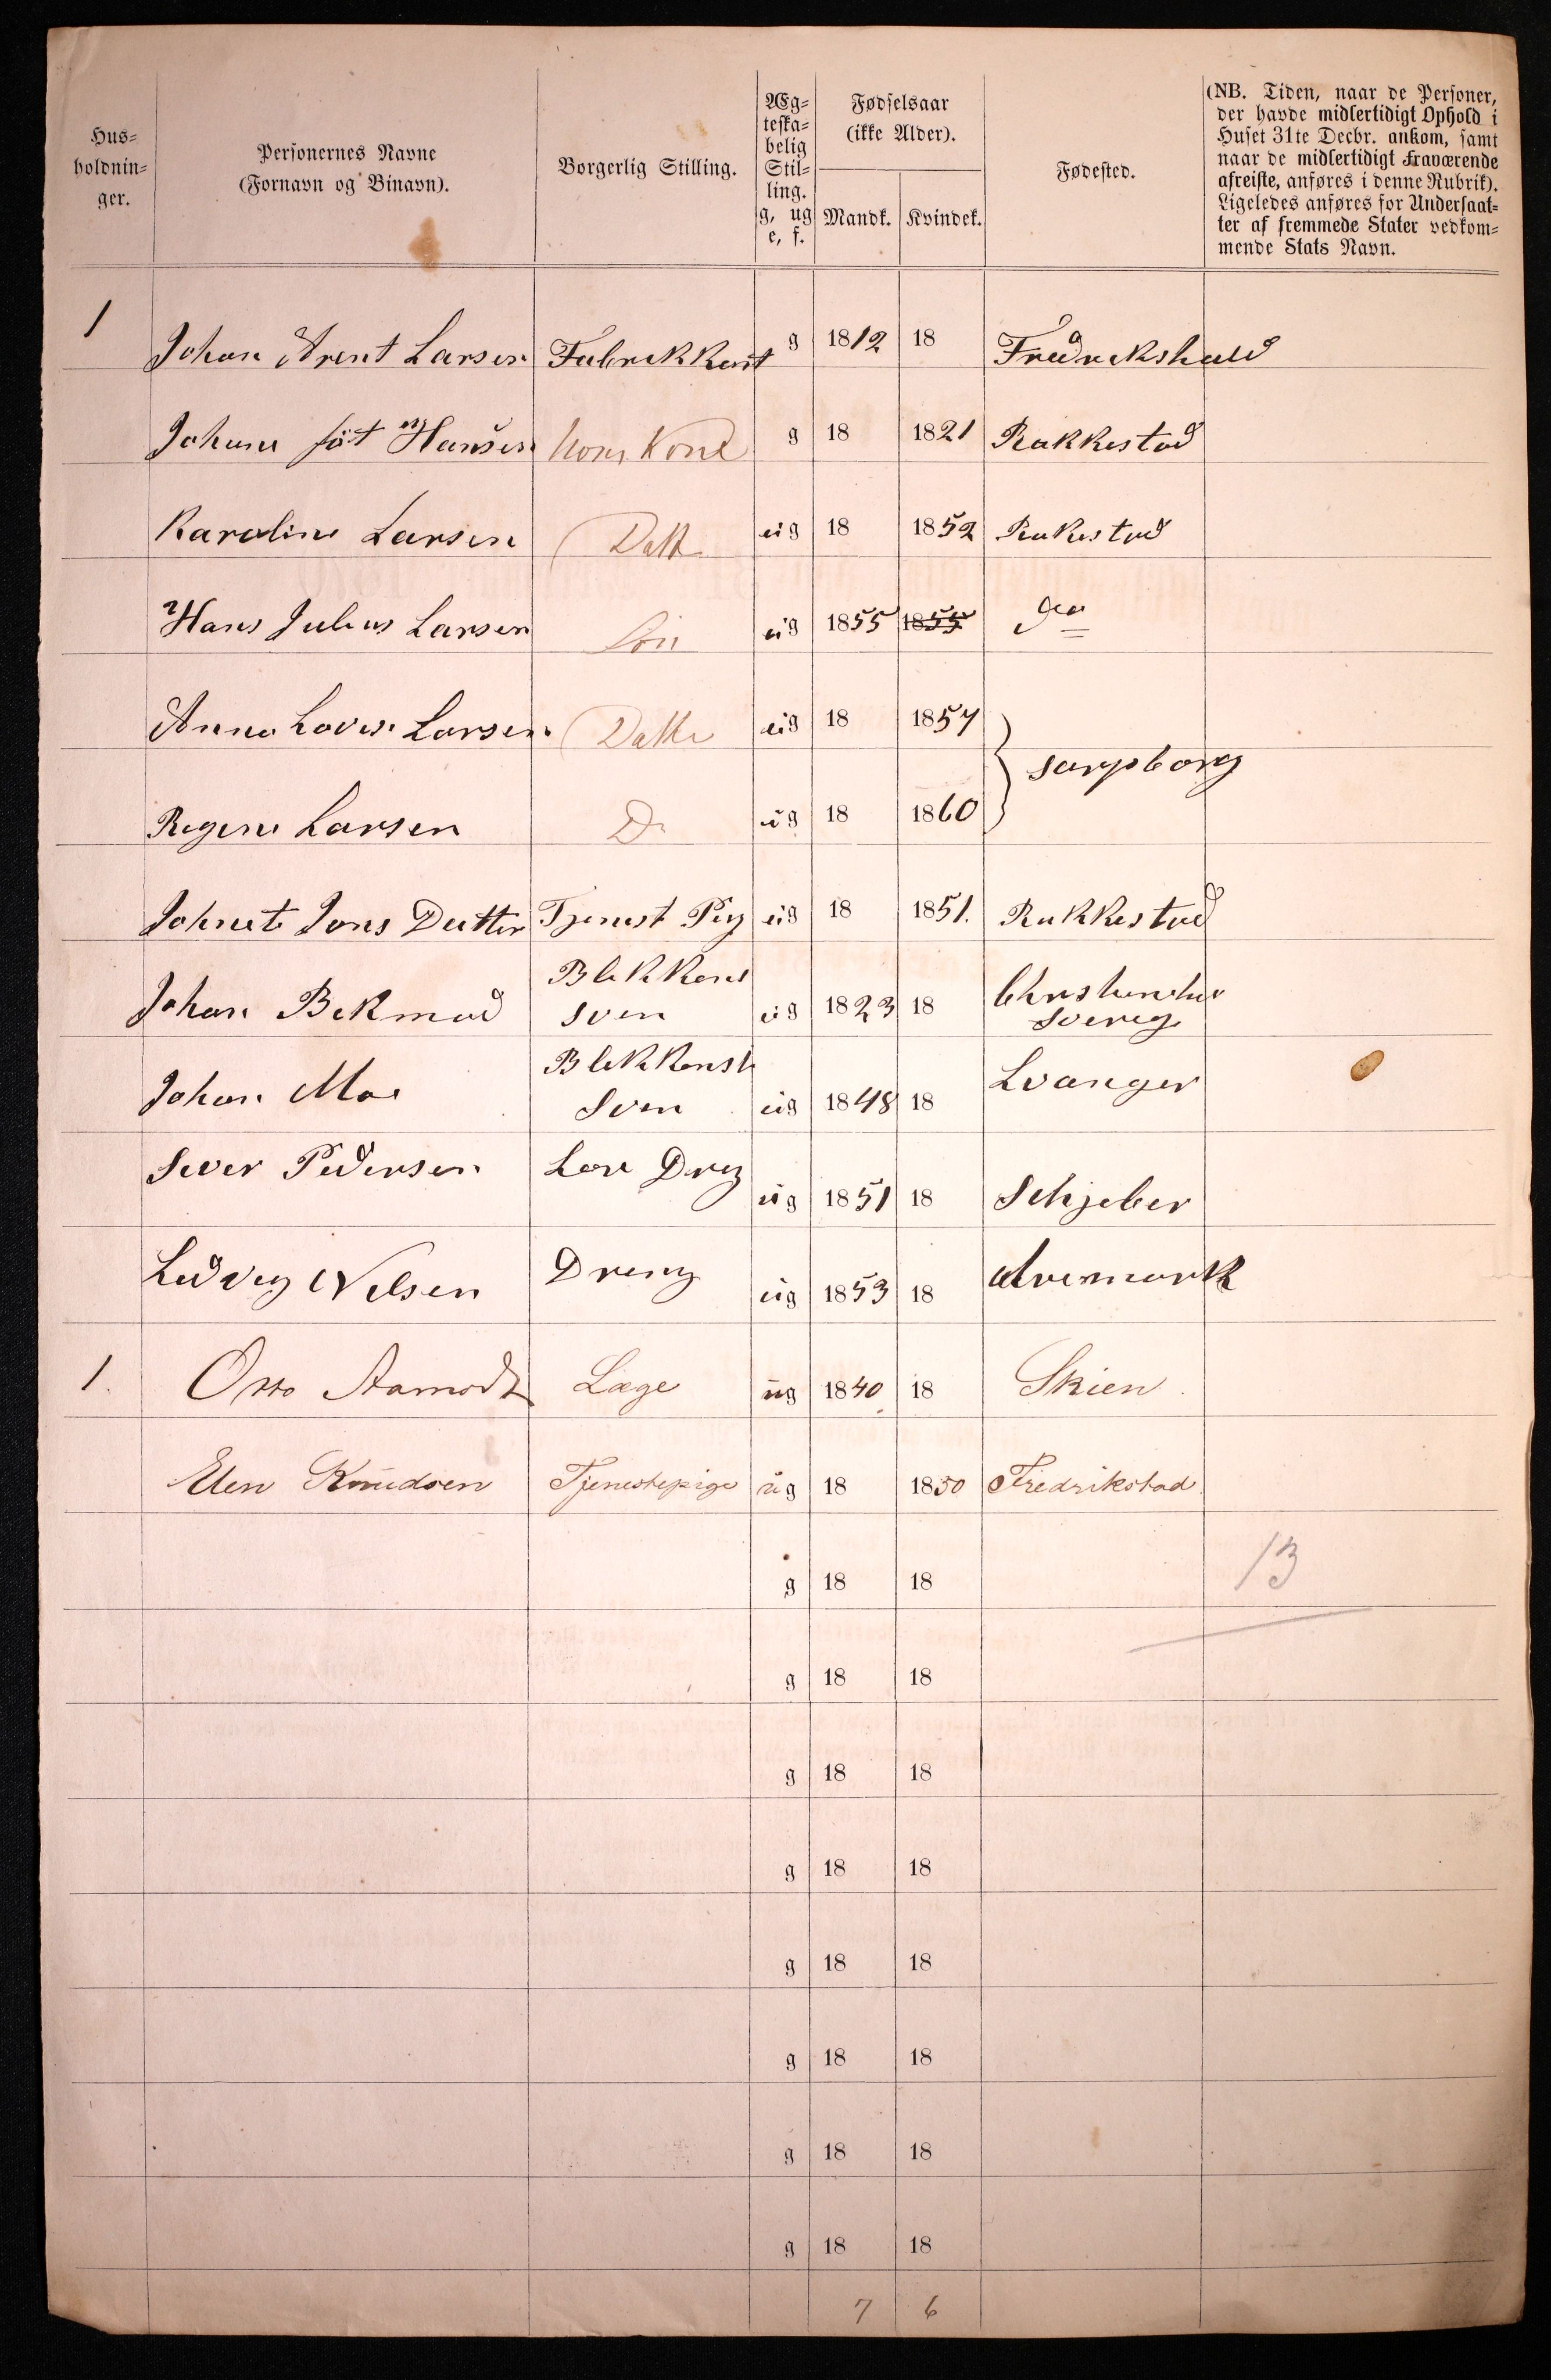 Hus=
holdnin=
ger.
Personernes Navne
(Fornavn og Binavn).
Borgerlig Stilling.
Æg=
teska=
belig
Stil=
ling.
g, ug
e, f.
Fødselsaar
(ikke Alder).
Mandk. Kvindek.
Fødested.
(NB. Tiden, naar de Personer,
der havde midlertidigt Ophold i
Huset 31te Decbr. ankom, samt
naar de midlertidigt Fraværende
afreiste, anføres i denne Rubrik).
Ligeledes anføres for Undersaat=
ter af fremmede Stater vedkom=
mende Stats Navn.
1 Johan Arent Larsen Fabrekkant g 1812 18 Fredrekshald
Johane föt Hansen hans Kone g 18 1821 Rakkestad
Karoline Larsen Datt ug 18 1852 Rakestad
Hans Julius Larsen Søn ug 1855 1855 do
Anna Lovise Larsen Datte ug 18 1857
sarpsborg
Regine Larsen D ug 18 1860
Johnete Jons Datter Tjenest Pig ug 18 1851. Rakkestad
Johan Bekmad Blekkens sven ug 1823 18 sverig
Johan Moe Blekkensl Sven ug 1848 18 Lvanger
Sever Pedersen Lære Dreg ug 1851 18 Schjeber
Ludvig Nelsen Dreng ug 1853 18 Aremark
1. Otto Aamodt Læge ug 1840 18 Skien.
Elen Knudsen Tjenestepige ug 18 1850 Fredrikstad.
g 18 18 13
g 18 18
g 18 18
g 18 18
g 18 18
g 18 18
g 18 18
g 18 18
7 6